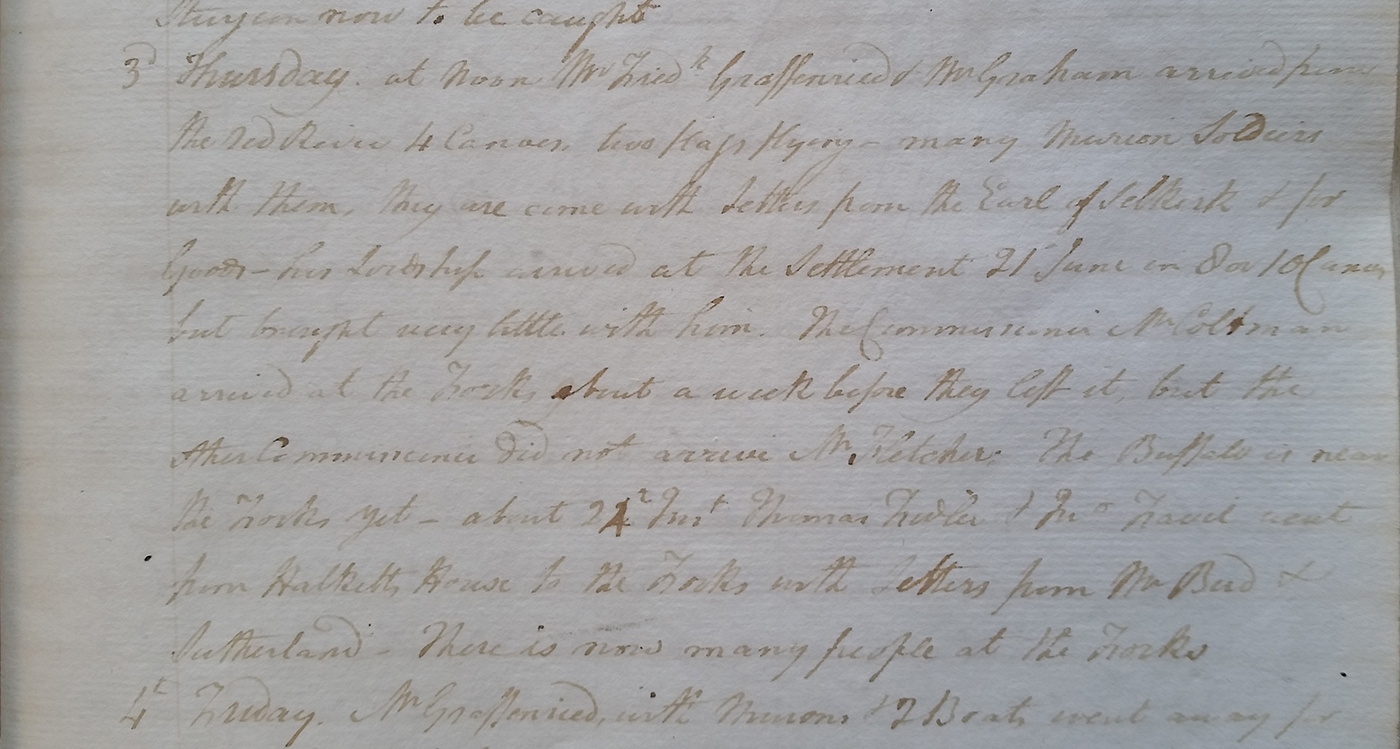 Sturgeon now to be caught
3d Thursday. at Noon Mr Fredk Graffenried & Mr Graham arrived from
the Red River 4 Canoes. two flags flying – many Muron Soldiers
with them, they are come with Letters from the Earl of Selkirk & for
Goods – his Lordship arrived at the Settlement 21t June in 8 or 10 Canoes
but brought very little with him. The Commissioner Mr Coltman
arrived at the Forks about a week before they left it, but the
other Commissioner did not arrive Mr Fletcher. The Buffalo is near
the Forks yet – about 24t Inst Thomas Fidler & Jno Favel went
from Halketts House to the Forks with Letters from Mr Bird &
Sutherland – There is now many people at the Forks
4t Friday. Mr Graffenried, with Murons & 2 Boats went away for